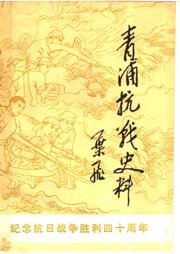 青浦抗战史料
叶飞
纪念抗日战争胜利四十周年